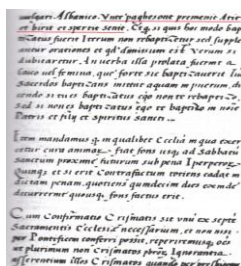 vulgari Albanico. Unte paghesont premenit Atit
et birit et spertit senit. Ego si quis hoc modo bap
tizatus fuerit iterum non rebaptizetur sed supple
antur orationes et quod
dubitaretur. In verba illa prolata fuerint a
laico vel femina, que forte sic baptizaverit
sacerdos baptizans mittat aquam in puerum, di
cendo si tu es baptizatus ego non te rebaptizo
sed si non es baptizatus ego te baptizo in nomine
Patris et filii et spiritus sancti
Item mandamus quilibet Ecclesia in qua exer
cetur cura animarum fiat fons usque ad Sabbatum
sanctum proxime futurum sub pena Iperperorum
Quinque et si erit Contrafactum totiens cadat in
dictam penam, quotiens quindecim dies ex inde
decurrerint quousque fons factus erit.
Cum Confirmatio Crismatis sit unum ex septem
Sacramentis Ecclesie necessarium, et non nisi
per Pontificem conferri possit, reperiremusque
ut plurimum non Crismatos Ignorantia
offerentium illos Crismatos quando